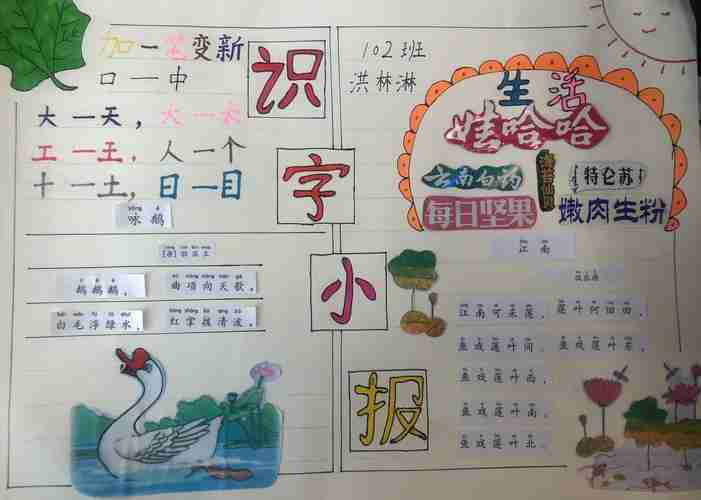 加一笔变新
口一中
大一天，大一
工一王，人一个
十一土，日一目
咏鹅
[唐]骆宾王
鹅鹅鹅， 曲项向天歌。
白毛浮绿水， 红掌拨清波。
识
字
小
报
102班
洪林淋
生活
娃哈哈
云南白药
特仑苏
每日坚果
嫩肉生粉
江南
江南可采莲， 莲叶何田田。
鱼戏莲叶间， 鱼戏莲叶东，
鱼戏莲叶西，
鱼戏莲叶南，
鱼戏莲叶北。